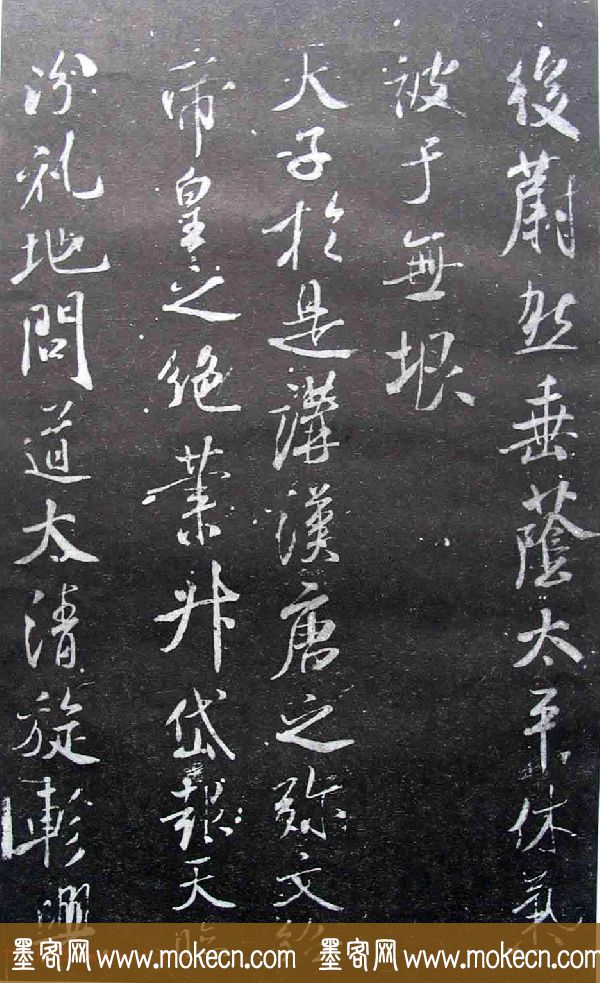 後蔚然垂蔭太平休氣
被于無垠
天子於是講漢唐之弥文
帝皇之絶業升岱報天
汾礼地問道太清旋軫
墨客网 www.mokecn.com 墨客网 www.mokecn.com